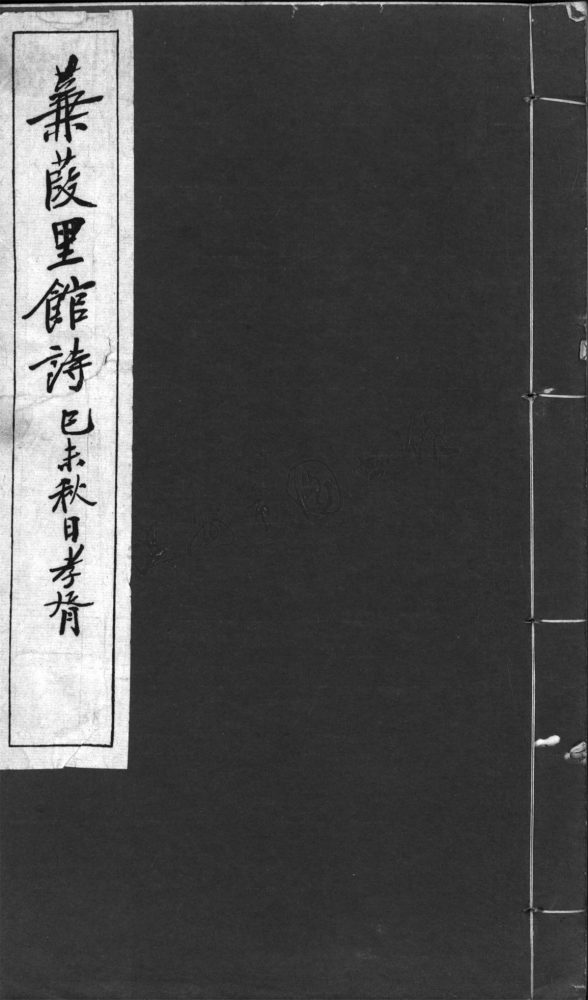 蒹葭里館詩 己未秋日孝胥